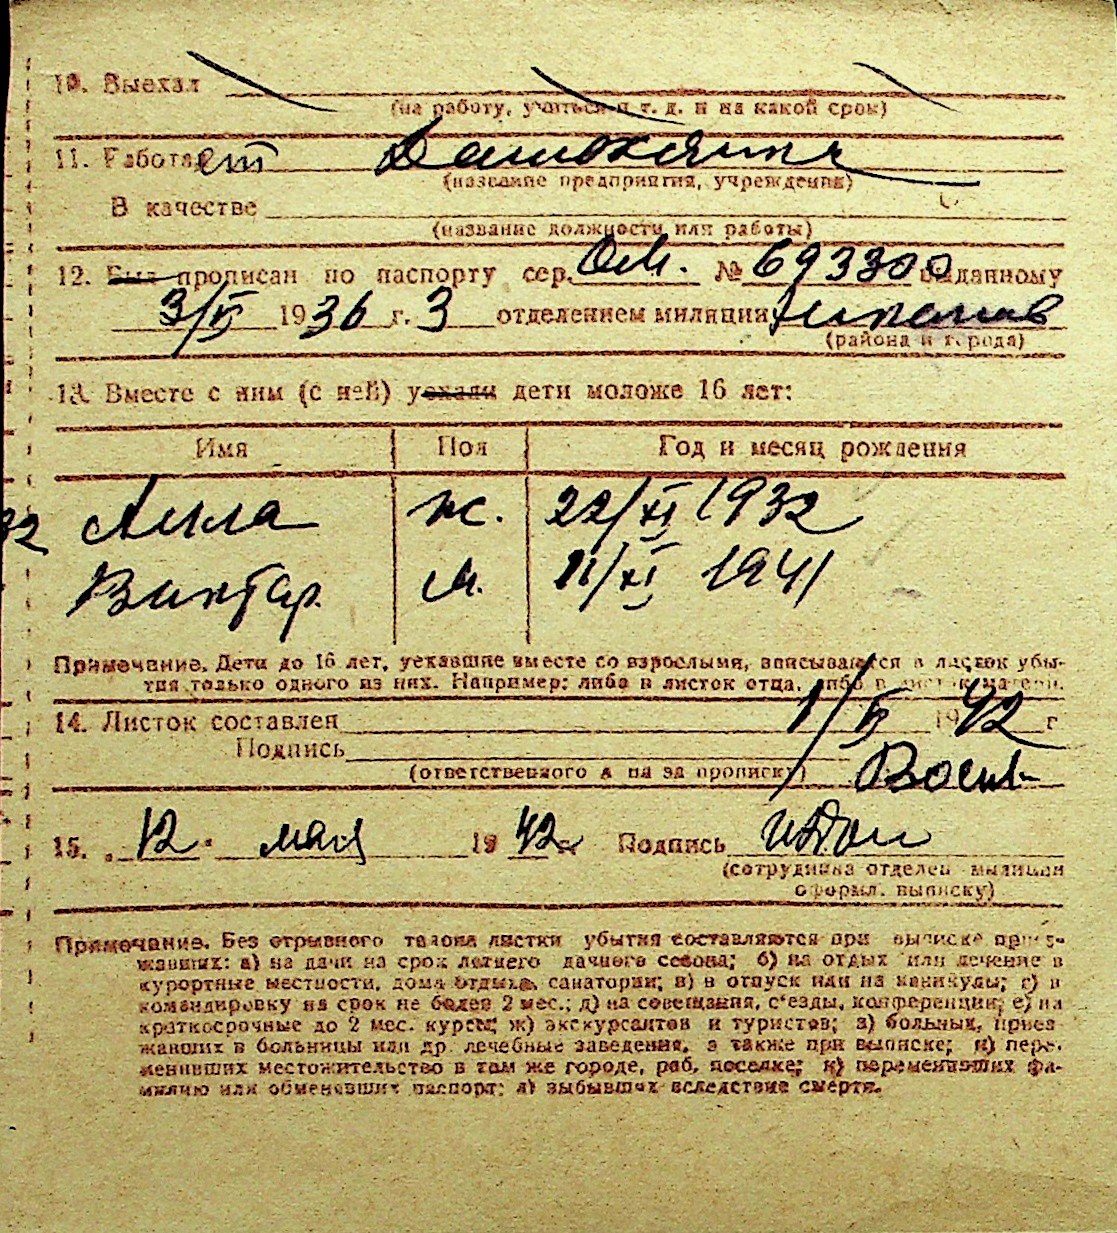 10. Выехал
(на работу, учиться и т. д. и на какой срок)
11. Работает Домохозяйка
(название предприятия, учреждения)
В качестве
(название должности или работы)
12. Был прописан по паспорту сер. ОМ. № 693300 выданному
3/IV 1936 г. 3 отделением милиции
(района и города)
13. Вместе с ним (с ней) уехали дети моложе 16 лет:
Имя Пол Год и месяц рождения
32 Алла ж. 22/XI 1932
Виктор. м. 11/XI 1941
Примечание. Дети до 16 лет, уехавшие вместе со взрослыми, вписываются в листок убы-
тия только одного из них. Например: либо в листок отца, либо в листок матери.
14. Листок составлен 1/IV 1942 г
Подпись
(ответственного л на за прописку)
15. 12. мая 1942 г. Подпись
(сотрудника отделен милиции
оформл. выписку)
Примечание. Без отрывного талона листки убытия составляются при выписке приез-
жавших: а) на дачи на срок летнего дачного сезона; б) на отдых или лечение в
курортные местности, дома отдыха, санатории; в) в отпуск или на каникулы; г) в
командировку на срок не более 2 мес.; д) на совещания, с'езды, конференции; е) на
краткосрочные до 2 мес. курсы; ж) экскурсантов и туристов; з) больных, приез-
жавших в больницы или др. лечебные заведения, а также при выписке; и) пере-
менивших местожительство в том же городе, раб. поселке; к) переменивших фа-
милию или обменявших паспорт; л) выбывших вследствие смерти.